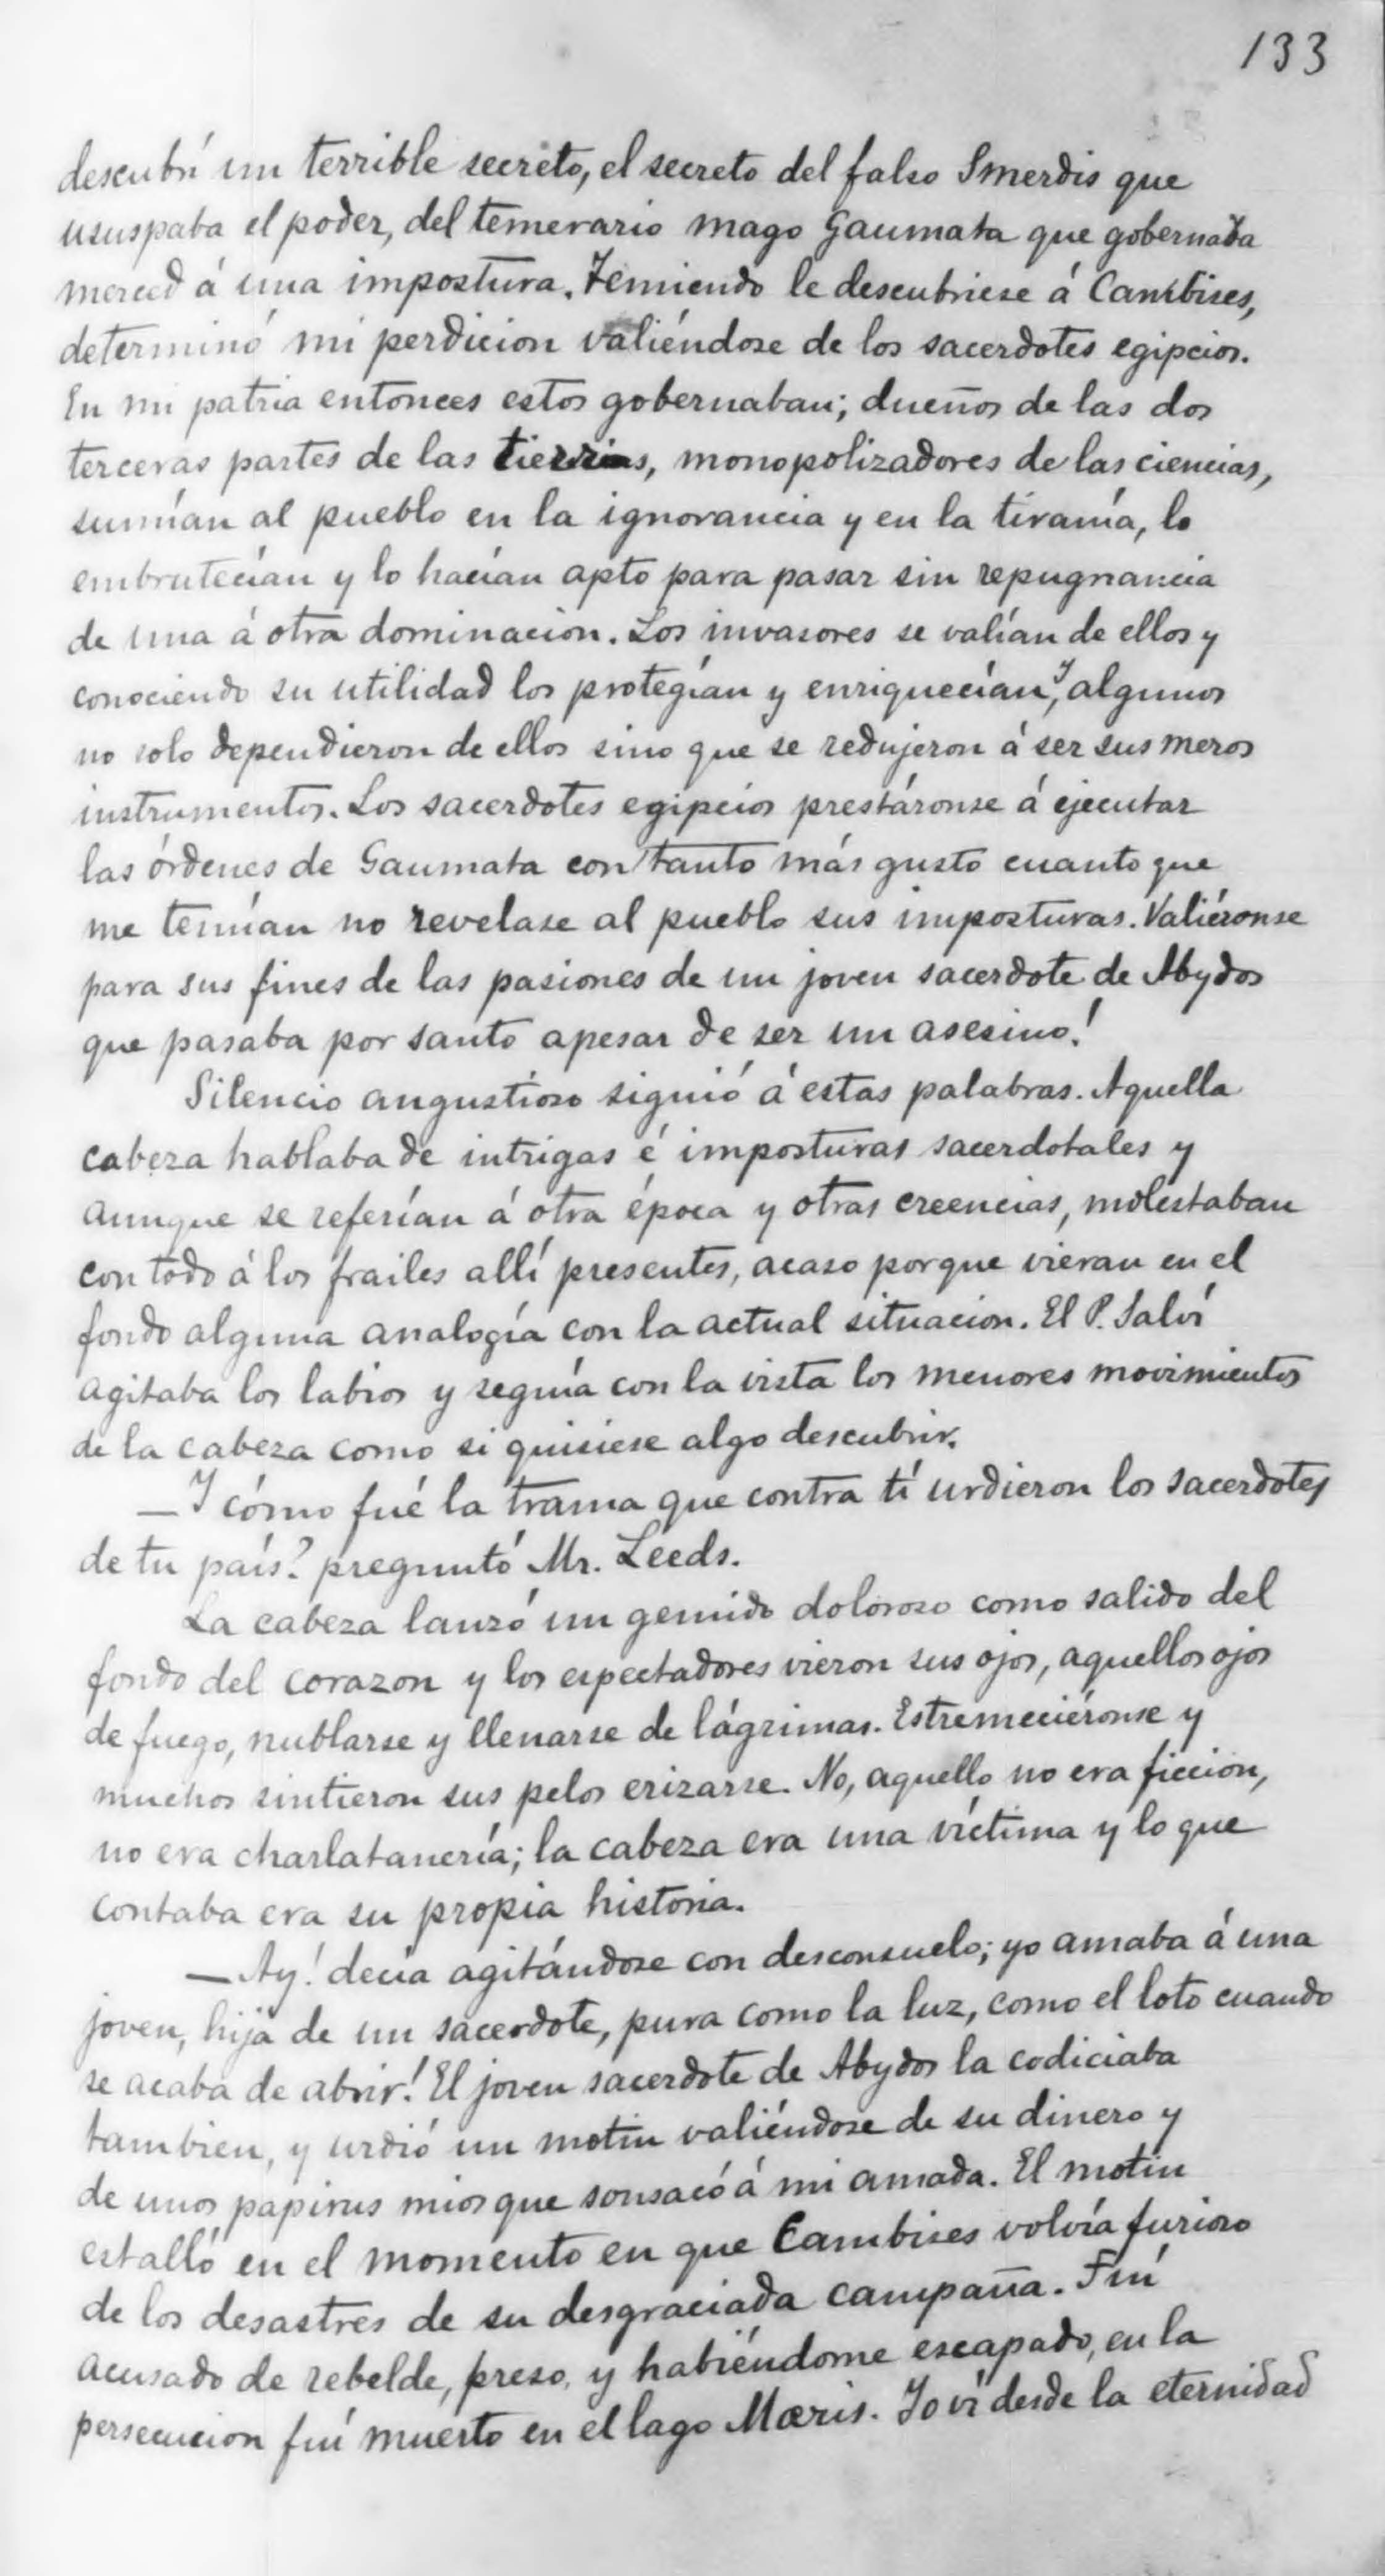 133
descubrí un terrible secreto, el secreto del falso Smerdis que
ususpaba el poder, del temerario mago Gaumata que gobernaba
merced á una impostura. Temiendo le descubriese á Cambises,
determinó mi perdicion valiéndose de los sacerdotes egipcios.
En mi patria entonces estos gobernaban; dueños de las dos
terceras partes de las tierras, monopolizadores de las ciencias,
sumían al pueblo en la ignorancia y en la tiranía, lo
embrutecían y lo hacían apto para pasar sin repugnancia
de una á otra dominacion. Los invasores se valían de ellos y
conociendo su utilidad los protegían y enriquecían, y algunos
no solo dependieron de ellos sino que se redujeron á ser sus meros
instrumentos. Los sacerdotes egipcios prestáronse á ejecutar
las órdenes de Gaumata con tanto más gusto cuanto que
me temían no revelase al pueblo sus imposturas. Valiéronse
para sus fines de las pasiones de un joven sacerdote de Abydos
que pasaba por santo apesar de ser un asesino!
Silencio angustioso siguió á estas palabras. Aquella
cabeza hablaba de intrigas é imposturas sacerdotales y
aunque se referían á otra época y otras creencias, molestaban
con todo á los frailes allí presentes, acaso porque vieran en el
fondo alguna analogía con la actual situacion. El P. Salví
agitaba los labios y seguía con la vista los menores movimientos
de la cabeza como si quisiese algo descubrir.
— Y cómo fué la trama que contra tí urdieron los sacerdotes
de tu país? preguntó Mr. Leeds.
La cabeza lanzó un gemido doloroso como salido del
fondo del corazon y los espectadores vieron sus ojos, aquellos ojos
de fuego, nublarse y llenarse de lágrimas. Estremeciéronse y
muchos sintieron sus pelos erizarse. No, aquello no era ficcion,
no era charlatanería; la cabeza era una víctima y lo que
contaba era su propia historia.
— Ay! decía agitándose con desconsuelo; yo amaba á una
joven, hija de un sacerdote, pura como la luz, como el loto cuando
se acaba de abrir! El joven sacerdote de Abydos la codiciaba
tambien, y urdió un motin valiéndose de su dinero y
de unos papirus mios que sonsacó á mi amada. El motin
estalló en el momento en que Cambises volvía furioso
de los desastres de su desgraciada campaña. Fuí
acusado de rebelde, preso, y habiéndome escapado, en la
persecucion fuí muerto en el lago Mœris. Yo ví desde la eternidad